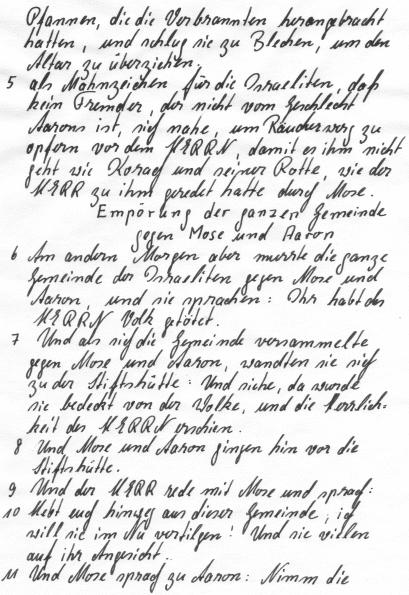 Pfannen, die die Verbrannten herangebracht
hatten, und schlug sie zu Blechen, um den
Altar zu überziehen,
5 als Mahnzeichen für die Israeliten, daß
kein Fremder, der nicht vom Geschlecht
Aarons ist, sich nahe, um Räucherwerg zu
opfern vor dem HERRN, damit es ihm nicht
geht wie Korach und seiner Rotte, wie der
HERR zu ihm geredet hatte durch Mose.
Empörung der ganzen Gemeinde
gegen Mose und Aaron
6 Am andern Morgen aber murrte die ganze
Gemeinde der Israeliten gegen Mose und
Aaron, und sie sprachen: Ihr habt des
HERRN Volk getötet.
7 Und als sich die Gemeinde versammelte
gegen Mose und Aaron, wandten sie sich
zu der Stiftshütte. Und siehe, da wurde
sie bedeckt von der Wolke, und die Herrlich-
keit des HERRN erschien.
8 Und Mose und Aaron gingen hin vor die
Stiftshütte.
9 Und der HERR rede mit Mose und sprach:
10 Hebt euch hinweg aus dieser Gemeinde; ich
will sie im Nu vertilgen! Und sie vielen
auf ihr Angesicht.
11 Und Mose sprach zu Aaron: Nimm die